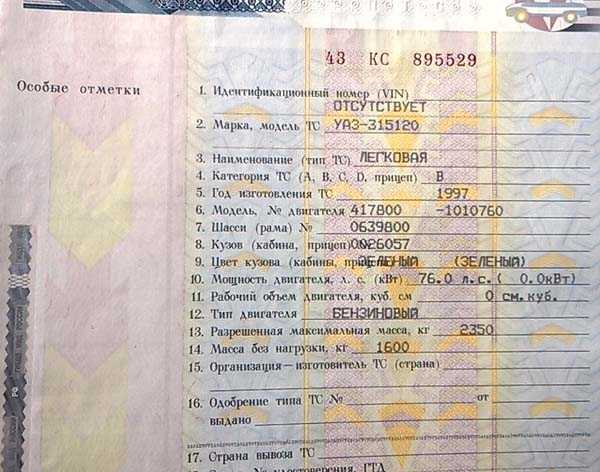 43 КС 895529
Особые отметки
1. Идентификационный номер (VIN)
ОТСУТСТВУЕТ
2. Марка, модель ТС УАЗ-315120
3. Наименование (тип ТС) ЛЕГКОВАЯ
4. Категория ТС (A, B, C, D, прицеп) B
5. Год изготовления ТС 1997
6. Модель, № двигателя 417800 -1010760
7. Шасси (рама) № 0639800
8. Кузов (кабина, прицеп) № 0026057
9. Цвет кузова (кабины, прицепа) ЗЕЛЕНЫЙ (ЗЕЛЕНЫЙ)
10. Мощность двигателя, л. с. (кВт) 76.0 л.с.( 0.0кВт)
11. Рабочий объем двигателя, куб. см 0 см.куб.
12. Тип двигателя БЕНЗИНОВЫЙ
13. Разрешенная максимальная масса, кг 2350
14. Масса без нагрузки, кг 1600
15. Организация—изготовитель ТС (страна)
16. Одобрение типа ТС № от
выдано
17. Страна вывоза ТС